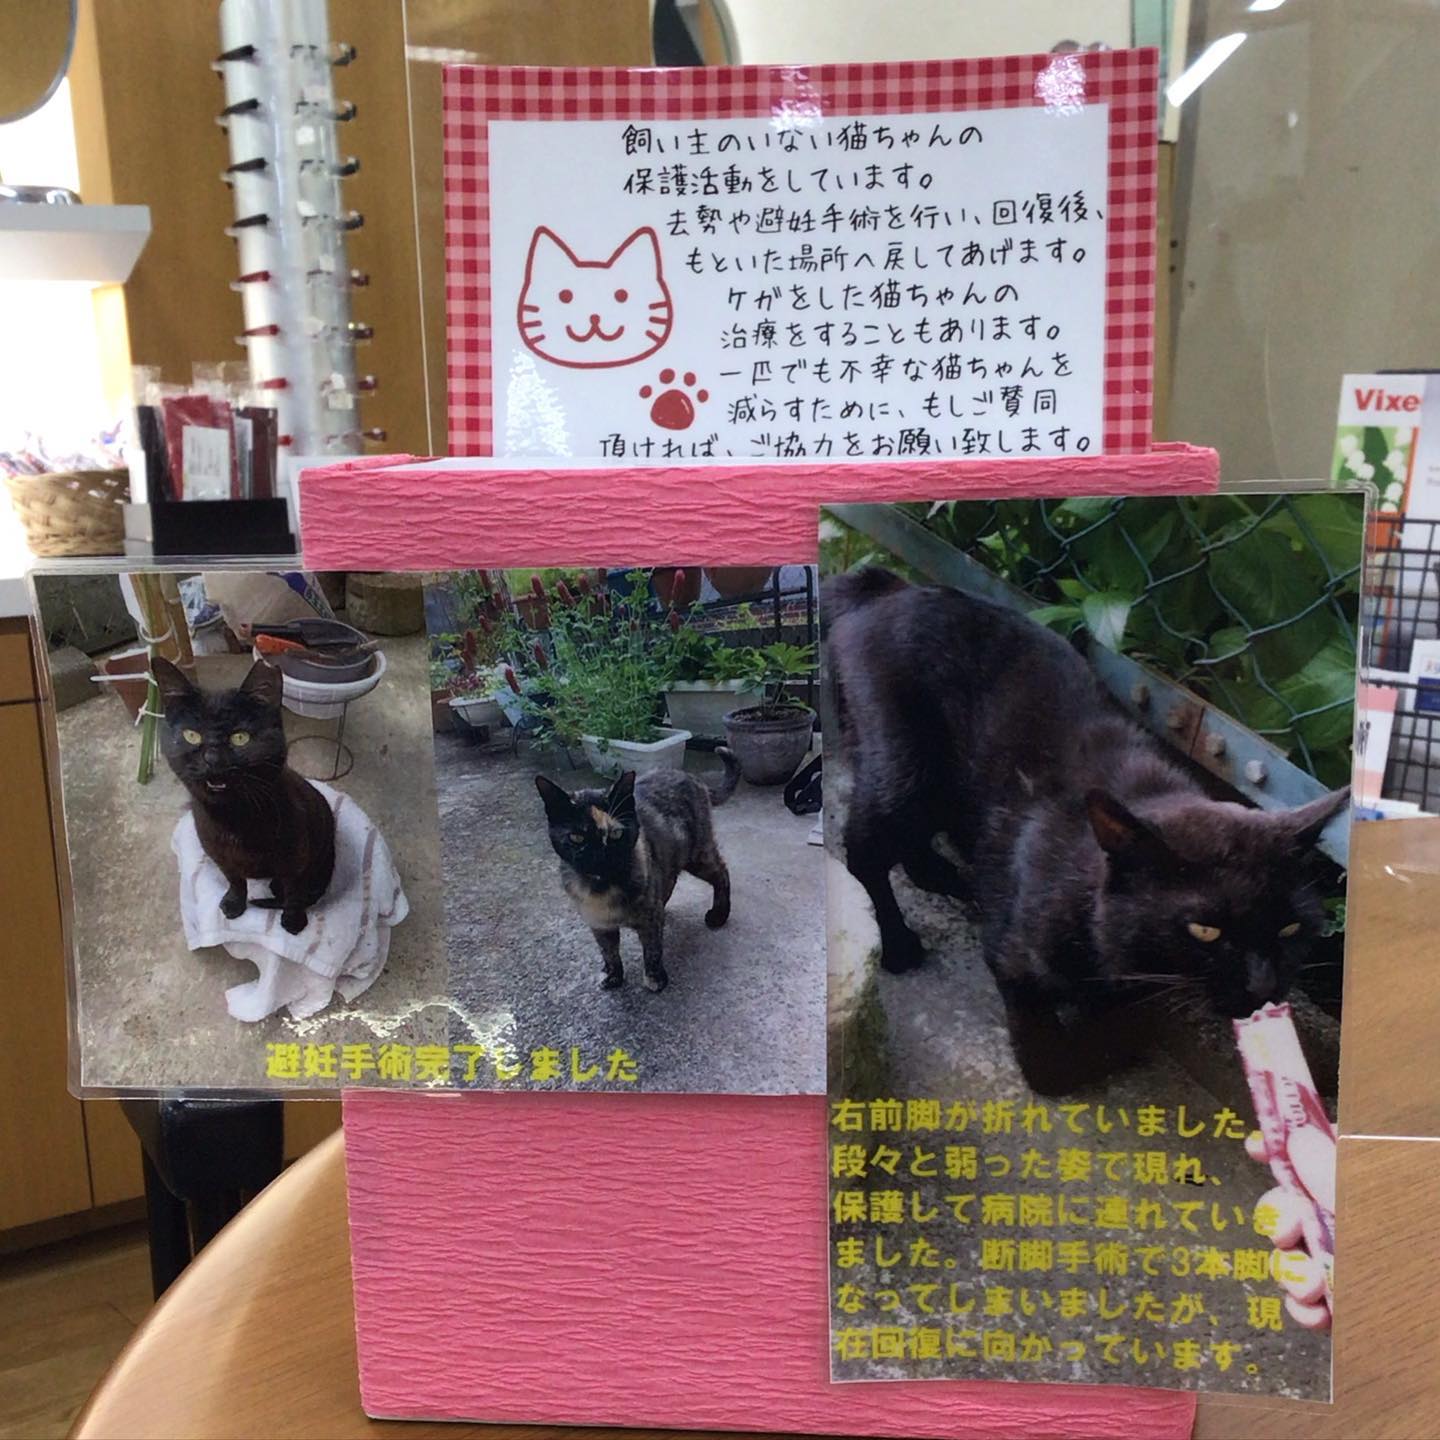 飼い主のいない猫ちゃんの
保護活動をしています。
去勢や避妊手術を行い、回復後、
もといた場所へ戻してあげます。
ケガをした猫ちゃんの
治療をすることもあります。
一匹でも不幸な猫ちゃんを
減らすために、もしご賛同
頂ければ、ご協力をお願い致します。
Vixe
避妊手術完了しました
右前脚が折れていました。
段々と弱った姿で現れ、
保護して病院に連れていき
ました。断脚手術で3本脚に
なってしまいましたが、現
在回復に向かっています。